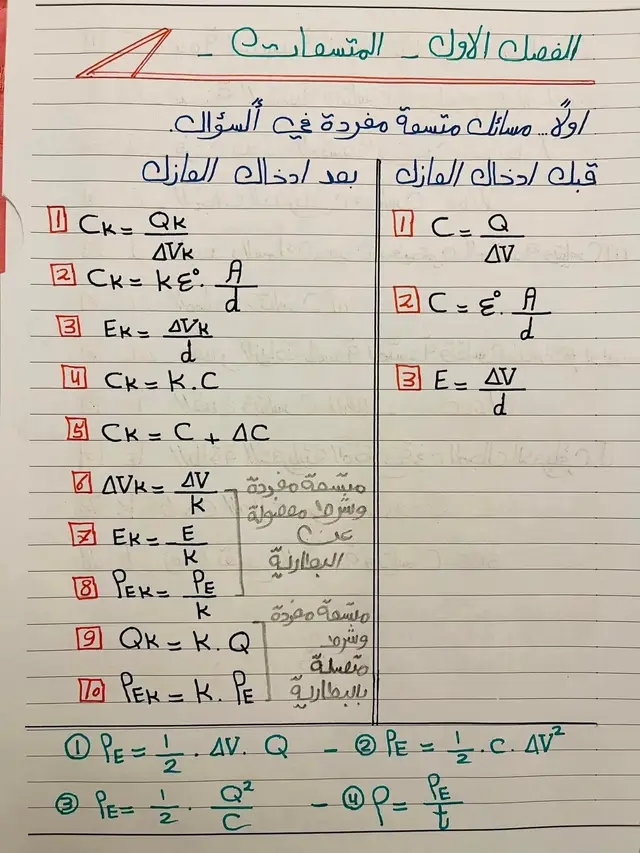 الفصل الاول - المتسعات -
اولاً... مسائل متسعة مفردة في السؤال.
قبل ادخال العازل
1 C = Q/ΔV
2 C = ε°. A/d
3 E = ΔV/d
بعد ادخال العازل
1 Ck = Qk/ΔVk
2 Ck = kε°. A/d
3 Ek = ΔVk/d
4 Ck = K.C
5 Ck = C + ΔC
6 ΔVk = ΔV/k
7 Ek = E/k
8 PEk = PE/k
متسعة مفردة
وشرط مفصولة
عن
البطارية
9 Qk = K.Q
10 PEK = K.PE
متسعة مفردة
وشرط
متصلة
بالبطارية
① PE = 1/2 . ΔV. Q - ② PE = 1/2 . C. ΔV²
③ PE = 1/2 . Q²/C - ④ P = PE/t